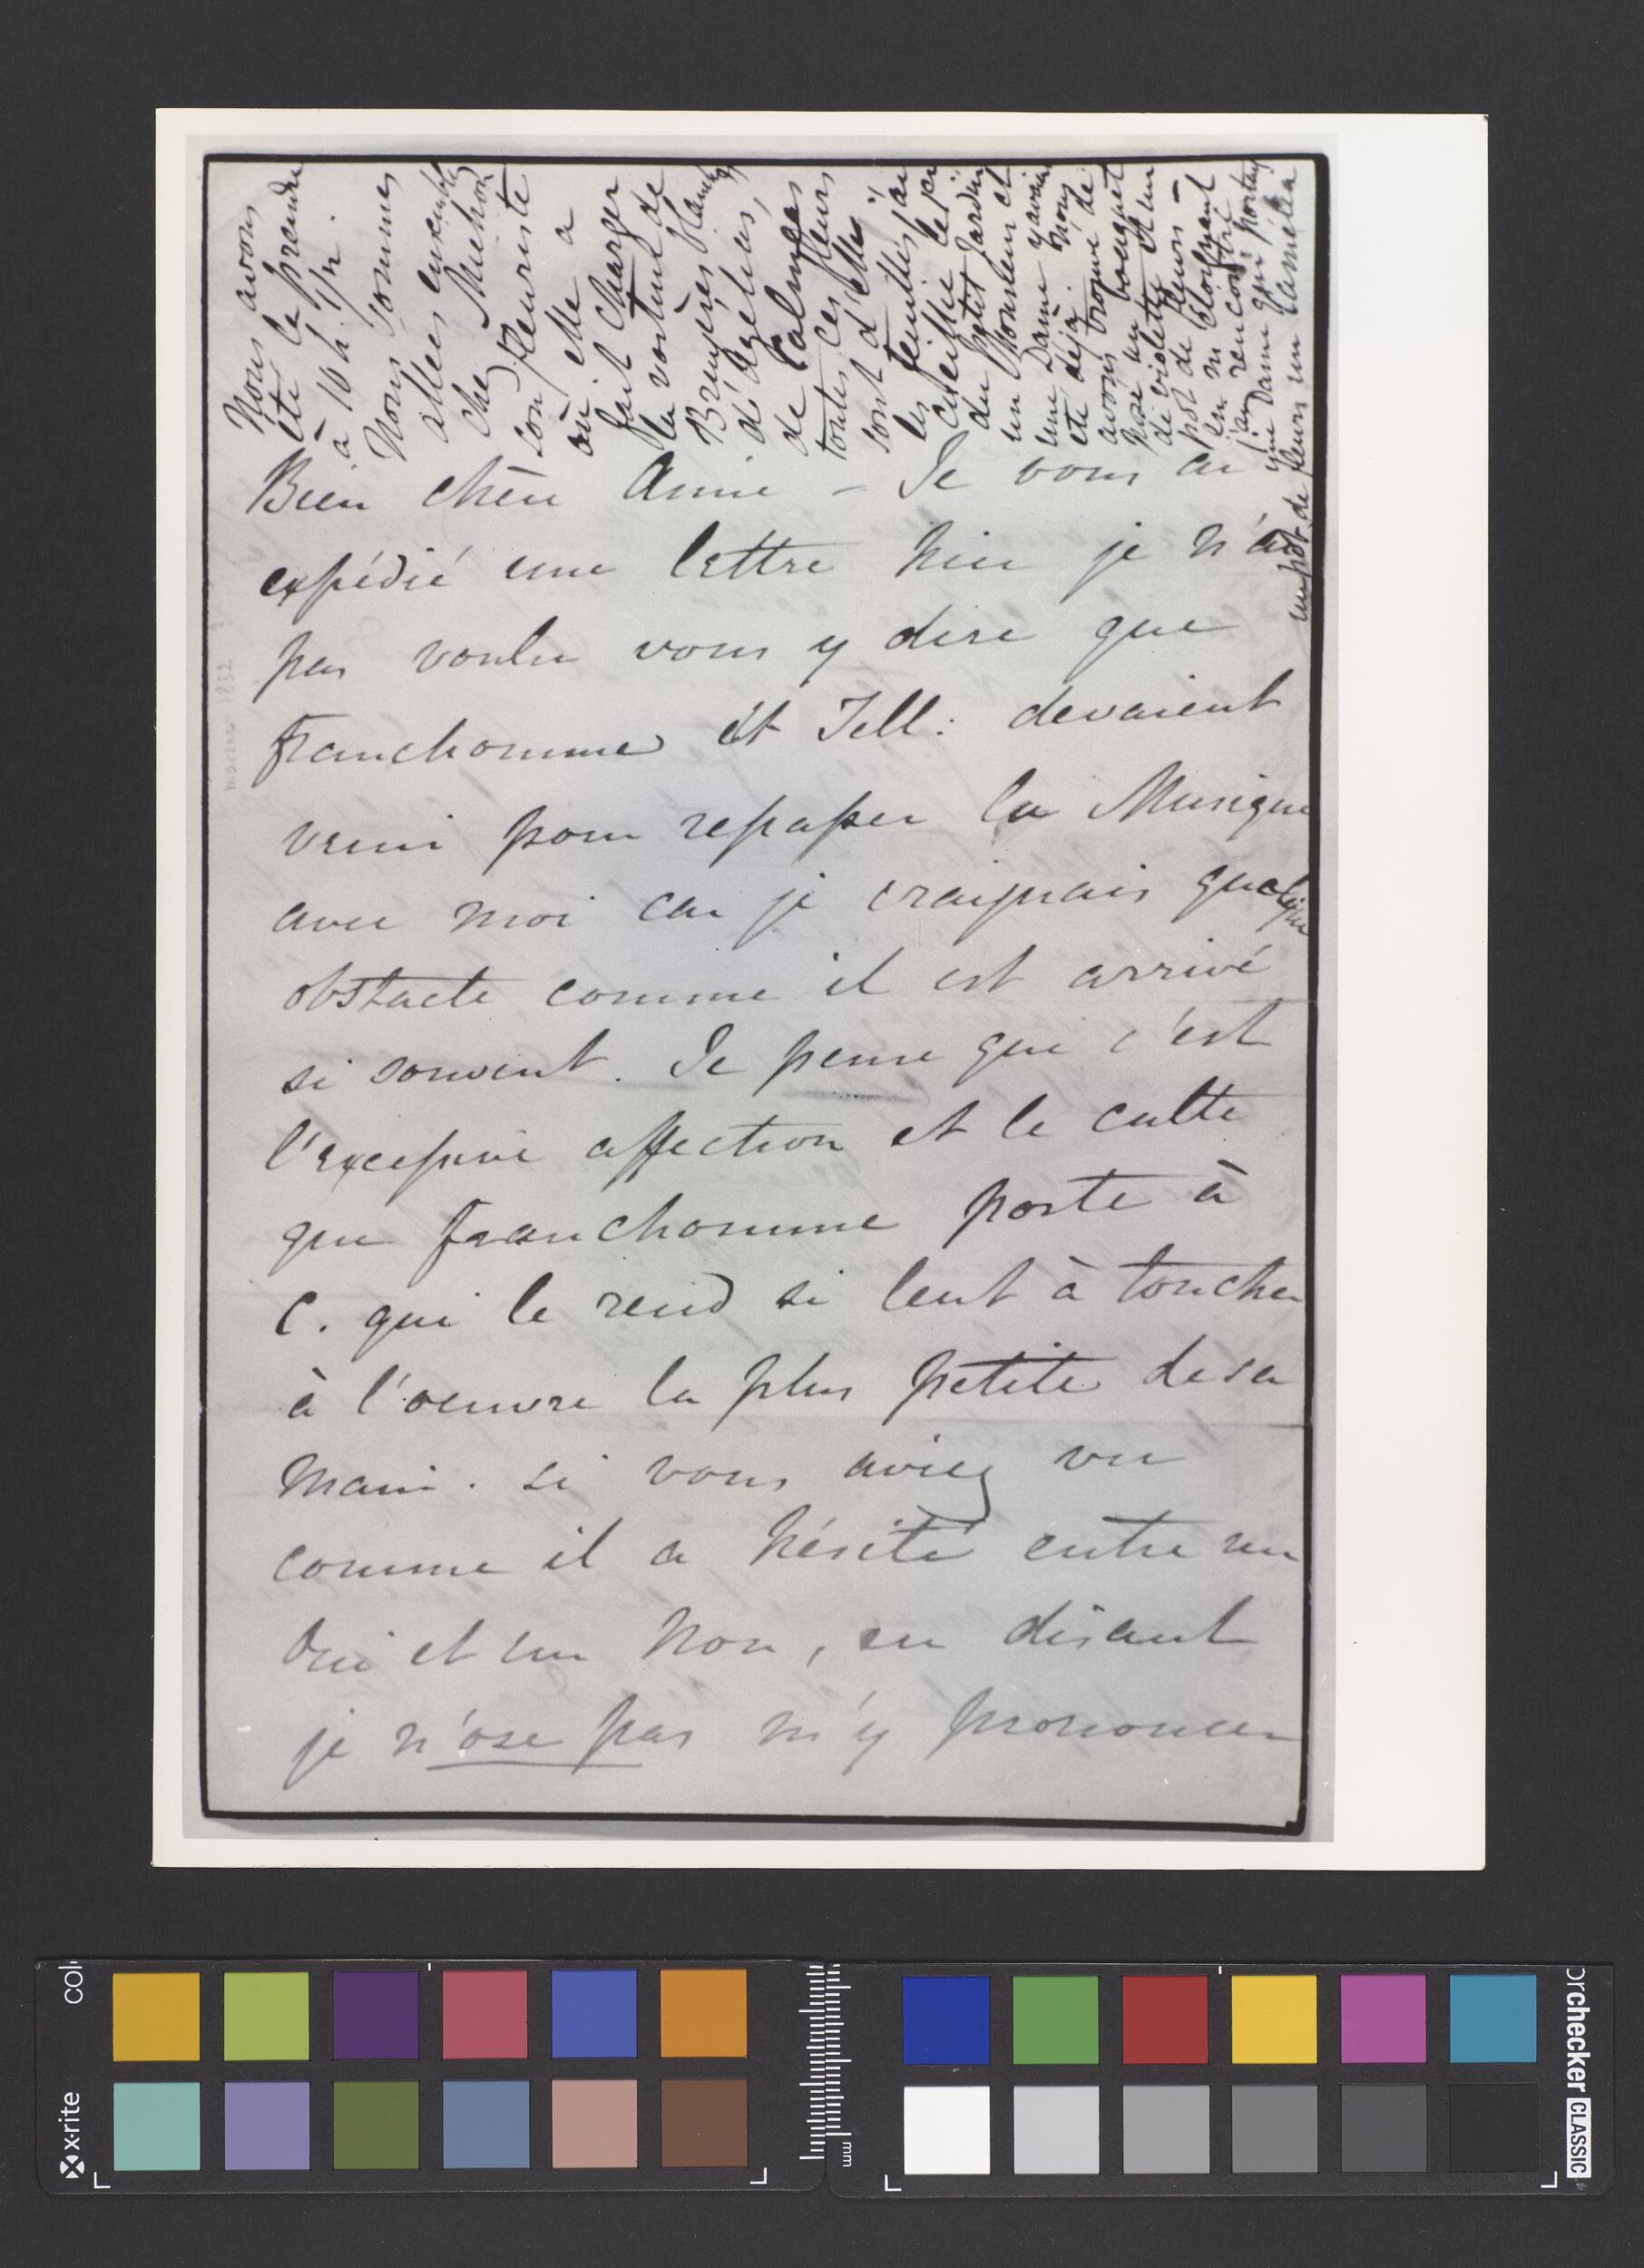 Nous avons
été la prendre
à 10 h. 1/2.
Nous sommes
allées ensemble
chez
son fleuriste
où elle a
fait charger
la voiture de
Bruyères blanches
d'
de Palmes
toutes ces fleurs
sont d'elle
les feuilles
du petit Jardin
un Monsieur et
une Dame y avaient
été déjà. nous
avons trouvé de
posé un bouquet
de violette et un
pot de fleurs -
en nous éloignant
j'ai rencontré
une Dame qui portait
un pot de fleurs un Camélia
Bien chère Amie - Je vous ai
expédié une lettre hier je n'ai
pas voulu vous y dire que
Franchomme et Tell: devaient
venir pour repasser la Musique
avec moi car je craignais quelque
obstacle comme il est arrivé
si souvent. Je pense que c'est
l'excessive affection et le culte
que Franchomme porte à
C. qui le rend si lent à toucher
à l'oeuvre la plus petite de sa
main. si vous aviez vu
comme il a hésité entre un
Oui et un Non, en disant
je n'ose pas m'y prononcer
x-rite
mm
colorchecker CLASSIC